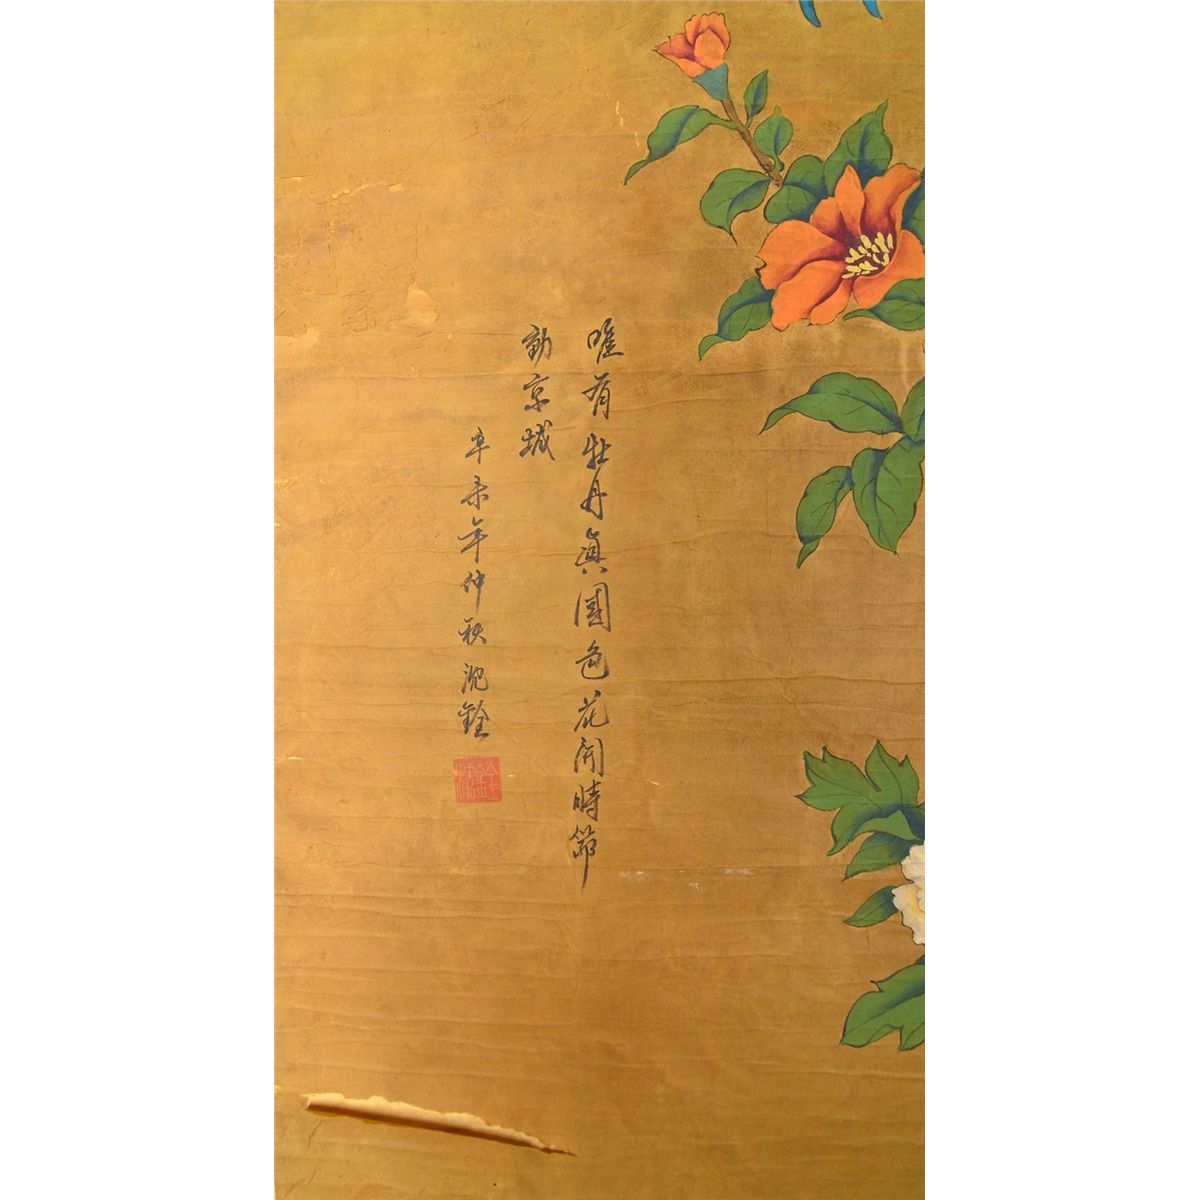 唯有牡丹真国色花開時節
動京城
辛未年仲秋沈銓
沈銓